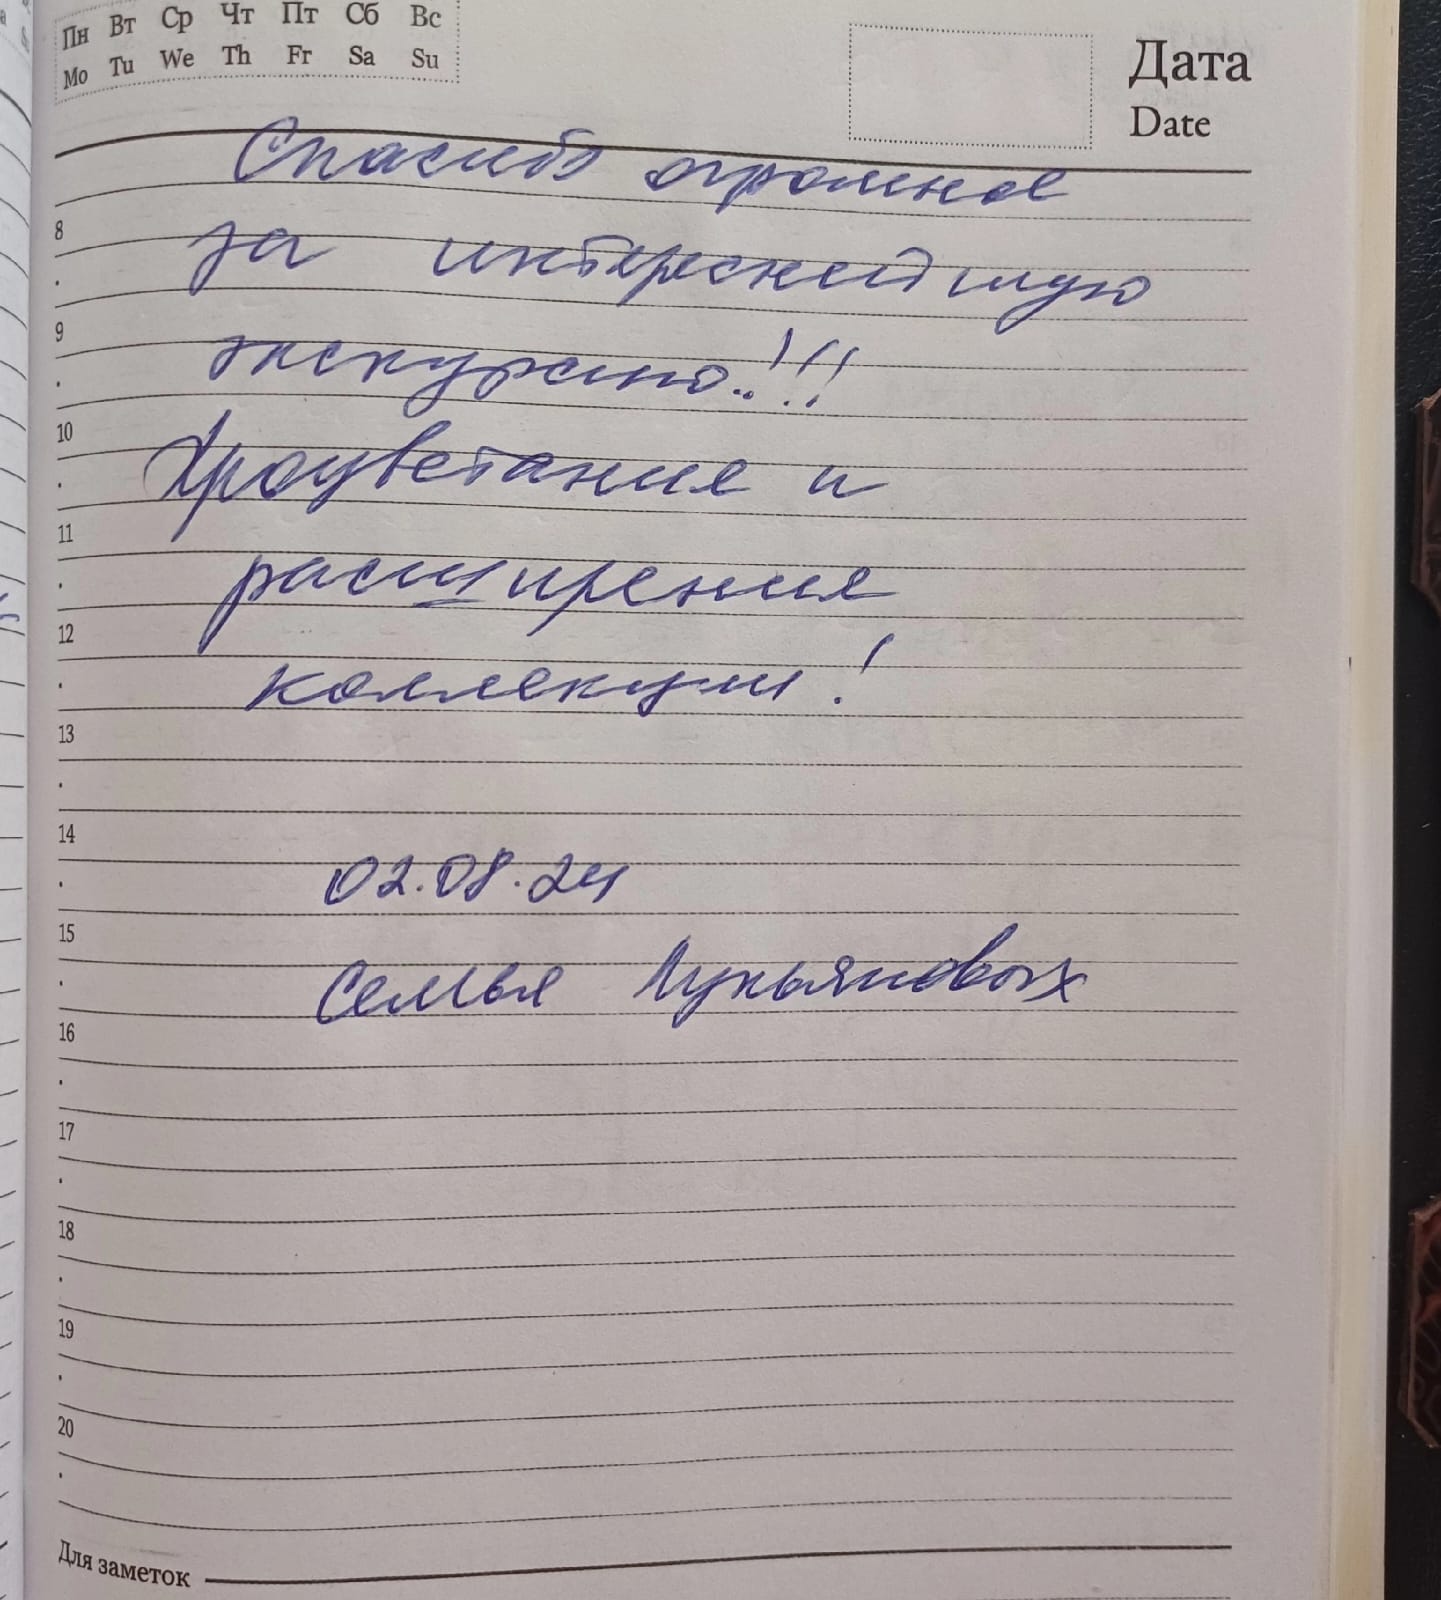 Пн Вт Ср Чт Пт Сб Вс
Mo Tu We Th Fr Sa Su
Дата
Date
Спасибо огромное
за интереснейшую
экскурсию..!!!
Процветания и
расширения
коллекции!
02.08.24
Семья Лукьяновых
8
9
10
11
12
13
14
15
16
17
18
19
20
Для заметок